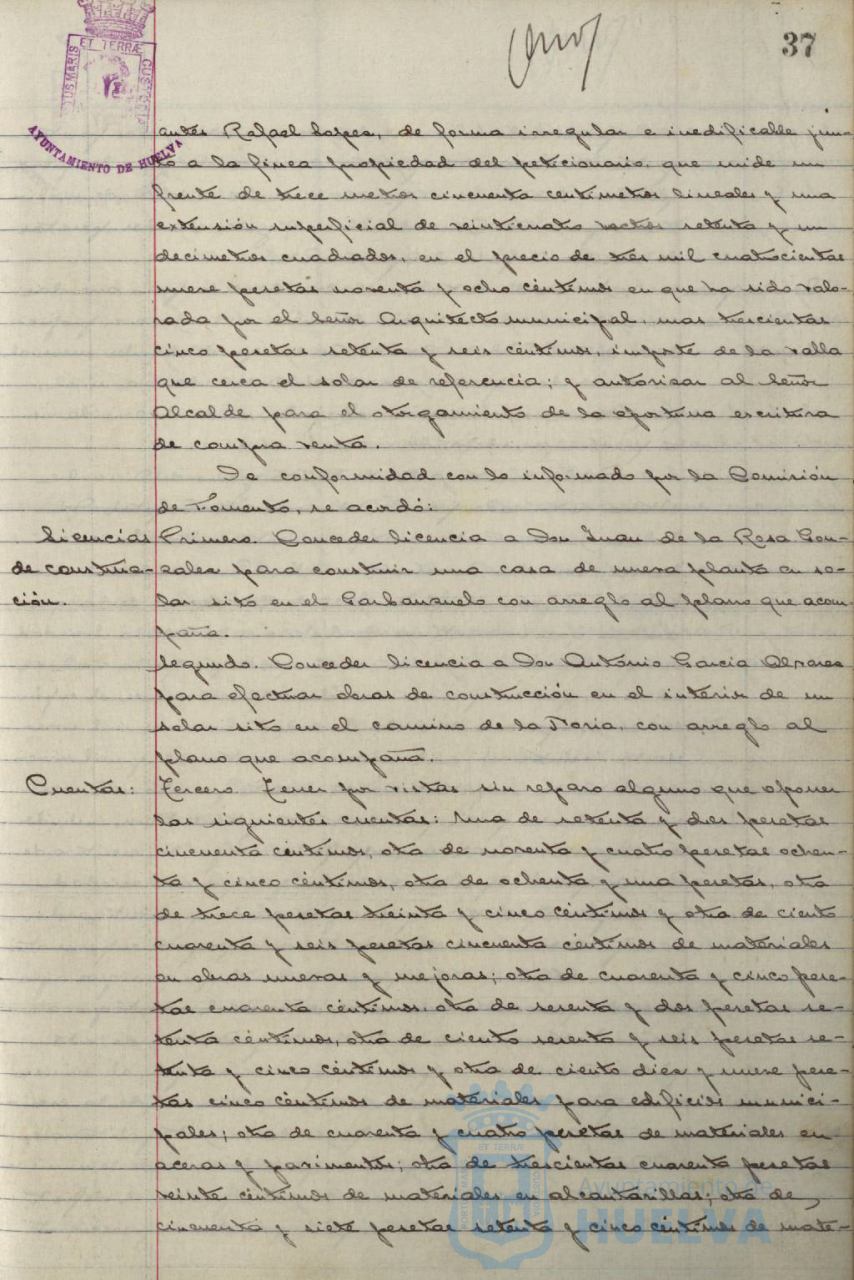 37
PORTUS MARIS ET TERRÆ CUSTODIA
AYUNTAMIENTO DE HUELVA
antes Rafael Lopez, de forma irregular e inedificable jun-
to a la finca propiedad del peticionario, que mide un
frente de trece metros cincuenta centimetros lineales y una
extensión superficial de veinticuatro metros setenta y un
decimetros cuadrados, en el precio de tres mil cuatrocientas
nueve pesetas noventa y ocho céntimos en que ha sido valo-
rada por el Señor Arquitecto municipal, mas trescientas
cinco pesetas setenta y seis céntimos, importe de la valla
que cerca el solar de referencia; y autorizar al Señor
Alcalde para el otorgamiento de la oportuna escritura
de compra venta.
De conformidad con lo informado por la Comisión
de Fomento, se acordó:
Licencias
de construc-
ción.
Primero. Conceder licencia a Don Juan de la Rosa Gon-
zalez para construir una casa de nueva planta en so-
lar sito en el Garbanzuelo con arreglo al plano que acom-
paña.
Segundo. Conceder licencia a Don Antonio Garcia Alvarez
para efectuar obras de construcción en el interior de un
solar sito en el camino de la Noria, con arreglo al
plano que acompaña.
Cuentas:
Tercero. Tener por vistas sin reparo alguno que oponer
las siguientes cuentas: Una de setenta y dos pesetas
cincuenta céntimos, otra de noventa y cuatro pesetas ochen-
ta y cinco céntimos, otra de ochenta y una pesetas, otra
de trece pesetas treinta y cinco céntimos y otra de ciento
cuarenta y seis pesetas cincuenta céntimos de materiales
en obras nuevas y mejoras; otra de cuarenta y cinco pese-
tas cuarenta céntimos, otra de sesenta y dos pesetas se-
tenta céntimos, otra de ciento sesenta y seis pesetas se-
tenta y cinco céntimos y otra de ciento diez y nueve pese-
tas cinco céntimos de materiales para edificios munici-
pales; otra de cuarenta y cuatro pesetas de materiales en
aceras y pavimentos; otra de trescientas cuarenta pesetas
veinte céntimos de materiales en alcantarillas; otra de
cincuenta y siete pesetas setenta y cinco céntimos de mate-
Ayuntamiento de
HUELVA